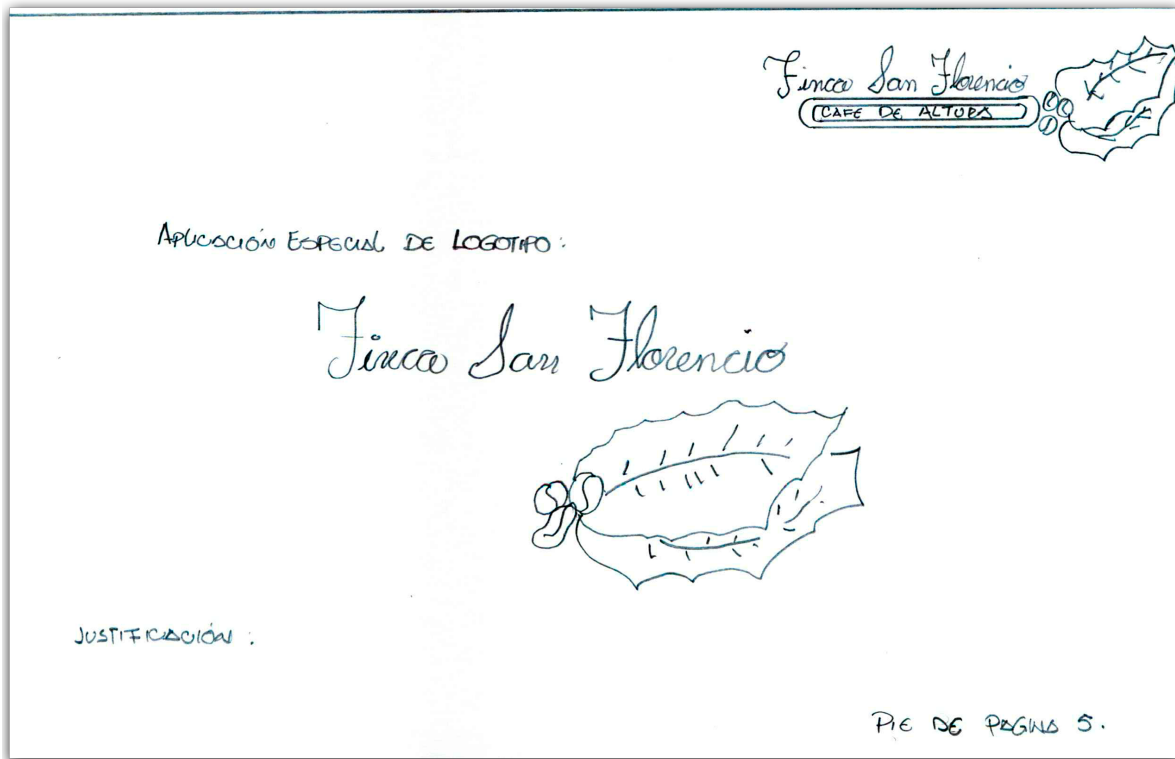 Finca San Florencio
CAFE DE ALTURA
APLICACIÓN ESPECIAL DE LOGOTIPO:
Finca San Florencio
JUSTIFICACIÓN:
PIE DE PAGINA 5.